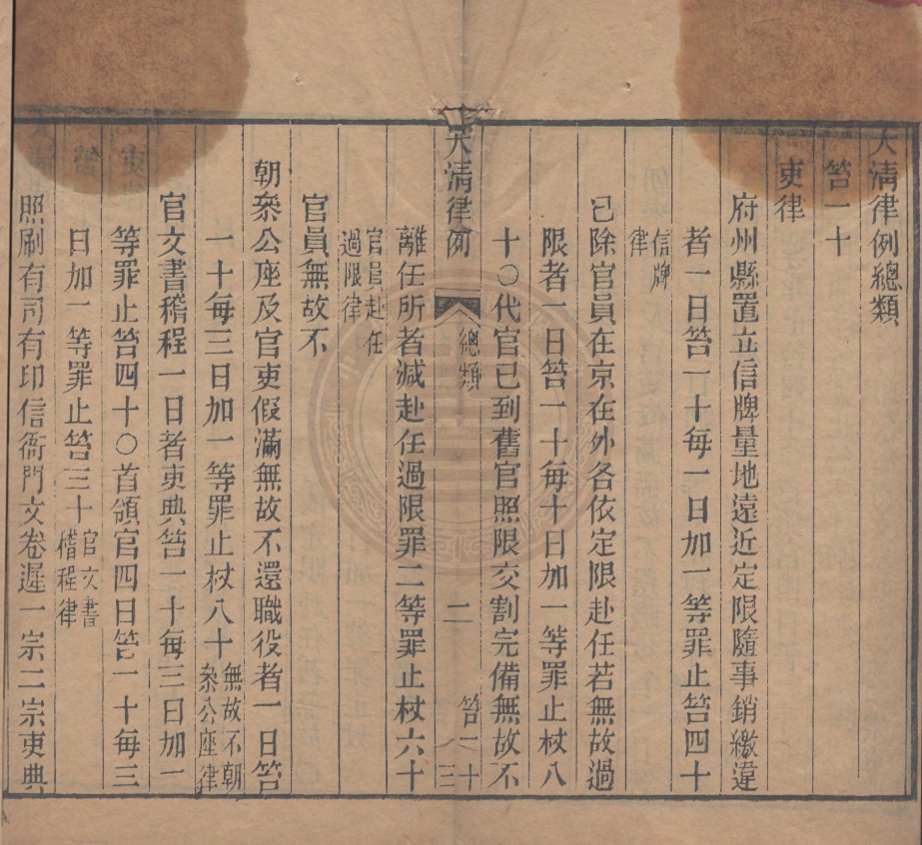 大清律例總類
笞一十
吏律
府州縣置立信牌量地遠近定限隨事銷繳違
者一日笞一十每一日加一等罪止笞四十
信牌
律
已除官員在京在外各依定限赴任若無故過
限者一日笞一十每十日加一等罪止杖八
十○代官已到舊官照限交割完備無故不
大清律例 總類 二 笞一十 三
離任所者減赴任過限罪二等罪止杖六十
官員赴任
過限律
官員無故不
朝叅公座及官吏假滿無故不還職役者一日笞
一十每三日加一等罪止杖八十無故不朝
叅公座律
官文書稽程一日者吏典笞一十每三日加一
等罪止笞四十○首領官四日笞一十每三
日加一等罪止笞三十官文書
稽程律
照刷有司有印信衙門文卷遲一宗二宗吏典